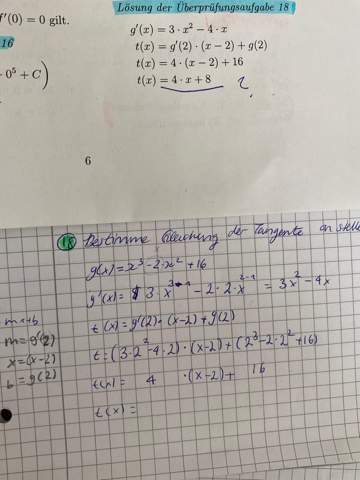 f'(0) = 0 gilt.
16
· 0⁵ + C)
Lösung der Überprüfungsaufgabe 18
g'(x) = 3 · x² − 4 · x
t(x) = g'(2) · (x − 2) + g(2)
t(x) = 4 · (x − 2) + 16
t(x) = 4 · x + 8 ?
6
18 Bestimme Gleichung der Tangente an stelle
g(x) = x³ − 2·x² + 16
g'(x) = 3·x³⁻¹ − 2·2·x²⁻¹ = 3x² − 4x
t(x) = g'(2) · (x−2) + g(2)
t = (3·2² − 4·2) · (x−2) + (2³ − 2·2² + 16)
t(x) = 4 · (x−2) + 16
t(x) =
m = g'(2)
x = (x−2)
b = g(2)